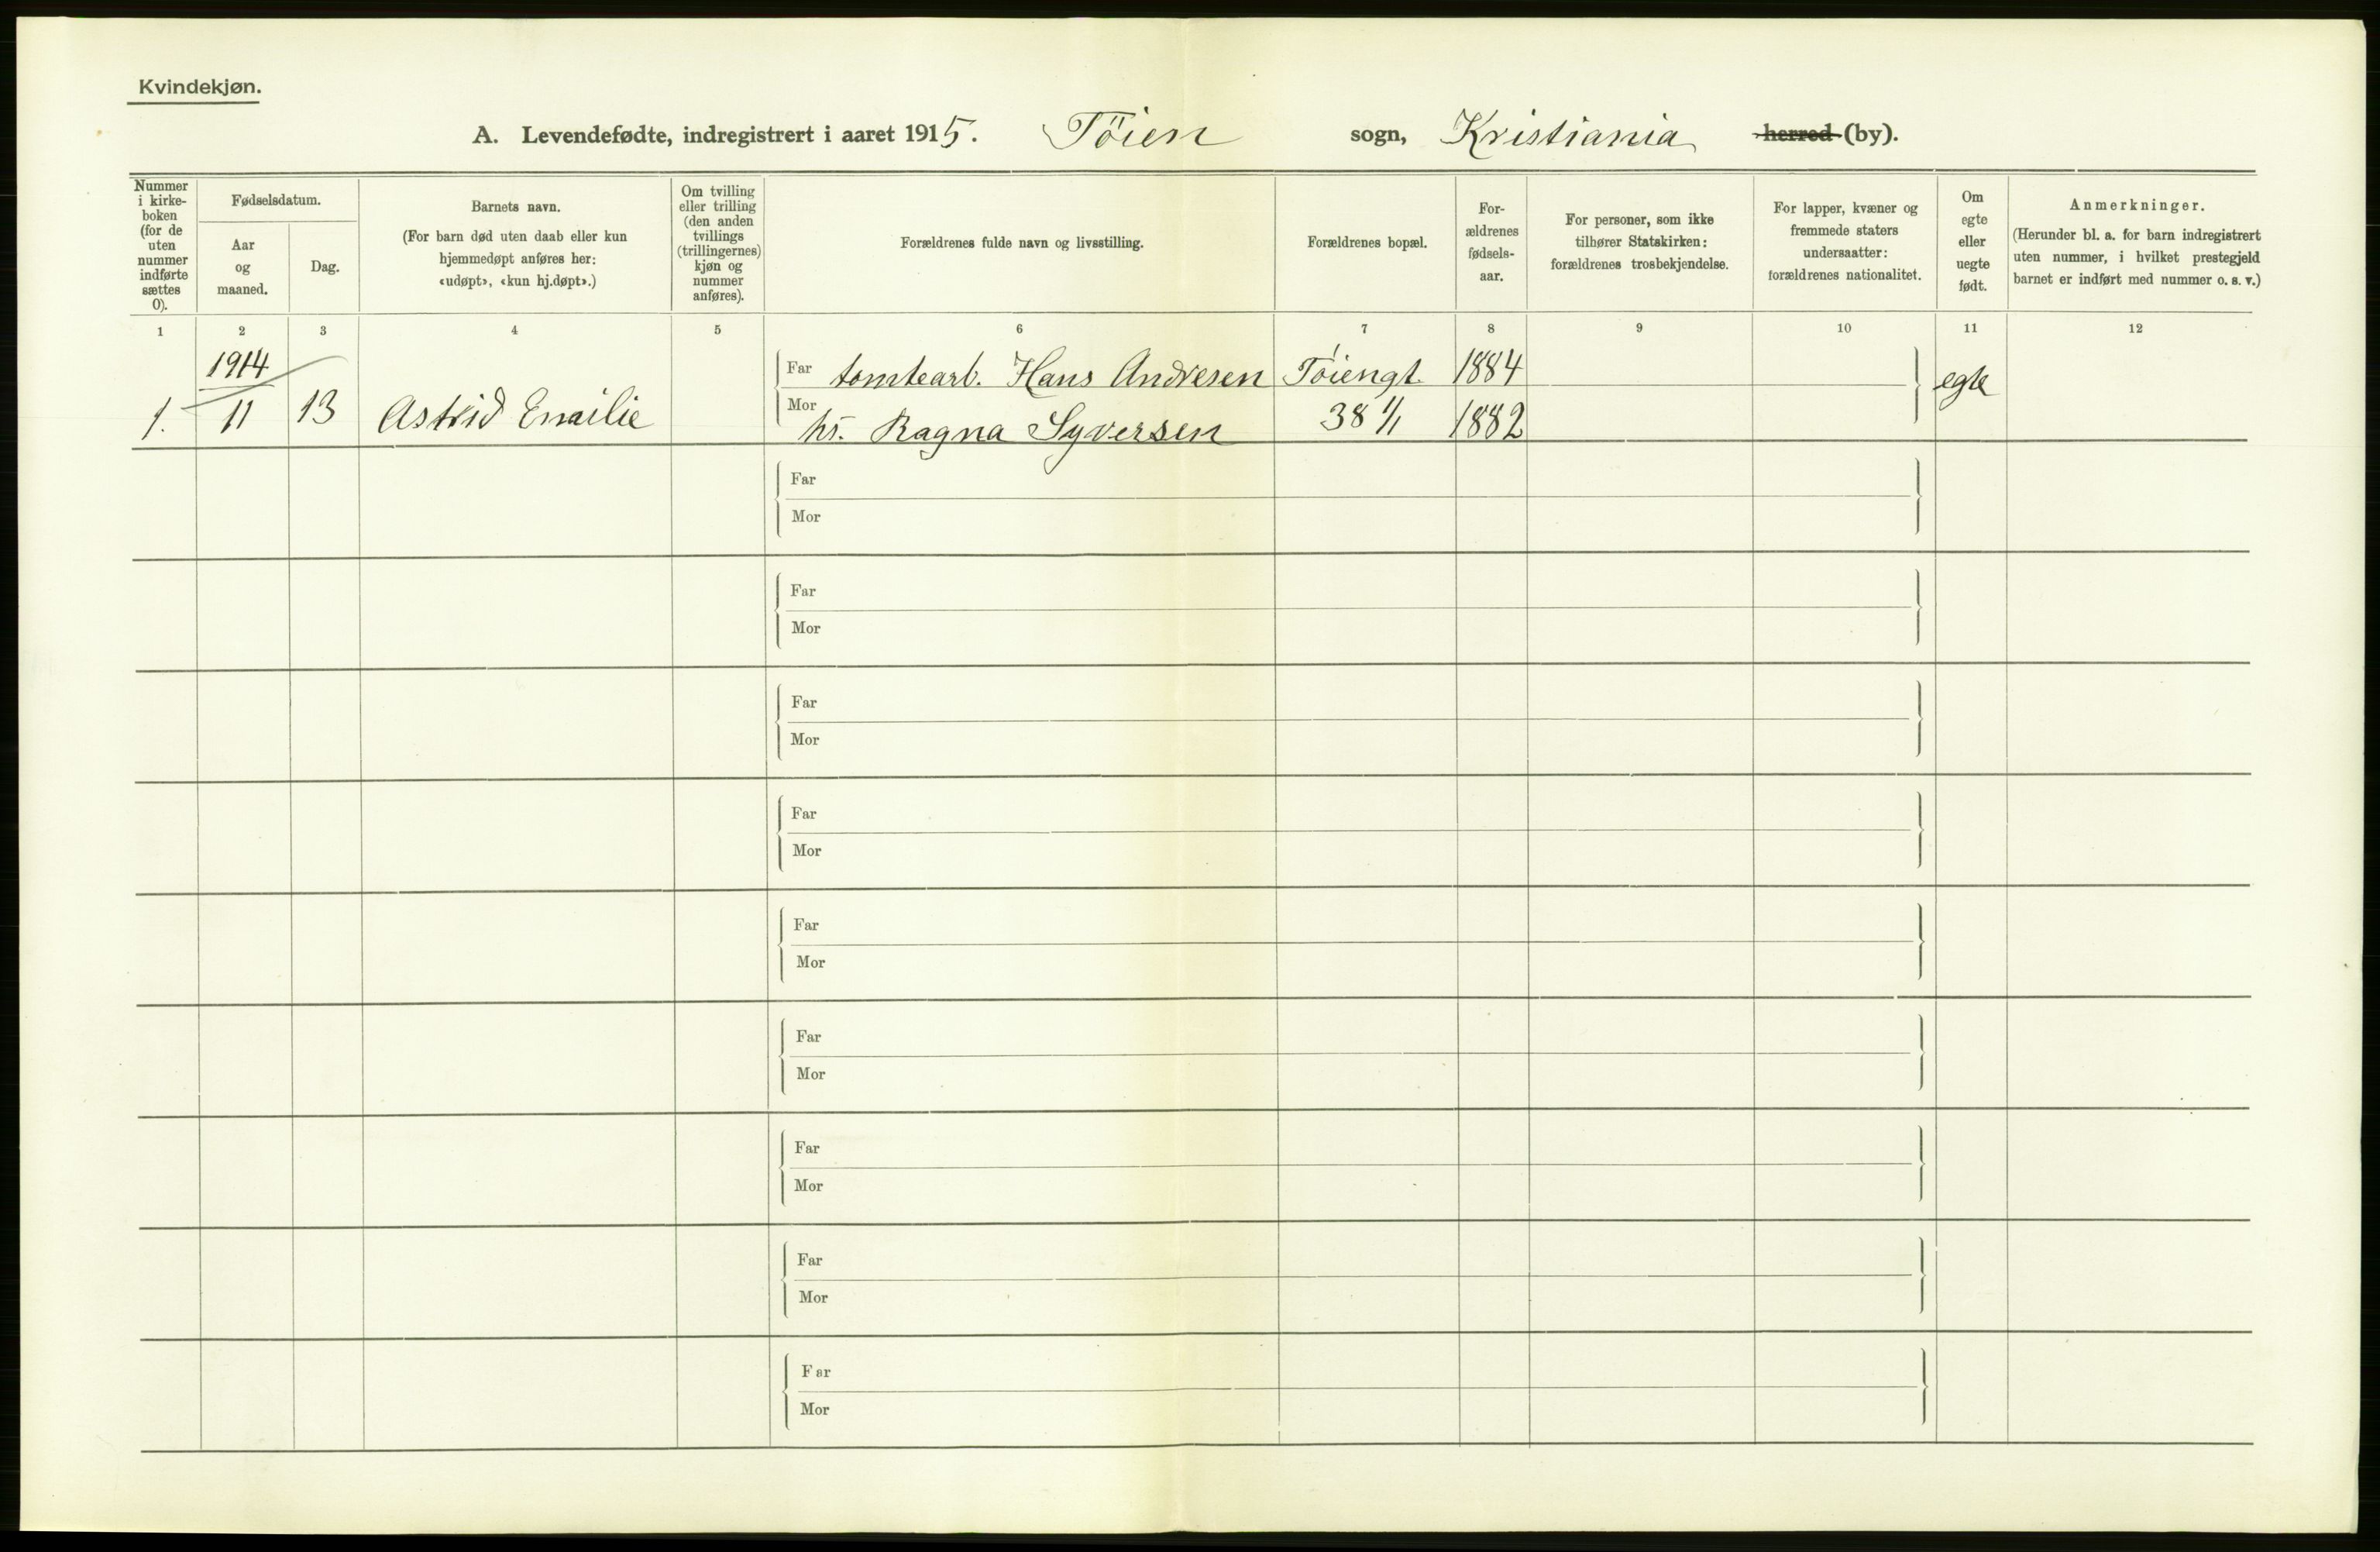 Kvindekjøn.
A. Levendefødte, indregistrert i aaret 1915. Töien sogn, Kristiania herred (by).
Nummer
i kirke-
boken
(for de
uten
nummer
indførte
sættes
0).
Fødselsdatum.
Aar
og
maaned.
Dag.
Barnets navn.
(For barn død uten daab eller kun
hjemmedøpt anføres her:
«udøpt», «kun hj.døpt».)
Om tvilling
eller trilling
(den anden
tvillings
(trillingernes)
kjøn og
nummer
anføres).
Forældrenes fulde navn og livsstilling.
Forældrenes bopæl.
For-
ældrenes
fødsels-
aar.
For personer, som ikke
tilhører Statskirken:
forældrenes trosbekjendelse.
For lapper, kvæner og
fremmede staters
undersaatter:
forældrenes nationalitet.
Om
egte
eller
uegte
født.
Anmerkninger.
(Herunder bl. a. for barn indregistrert
uten nummer, i hvilket prestegjeld
barnet er indført med nummer o. s. v.)
1 2 3 4 5 6 7 8 9 10 11 12
1914
Far tomtearb. Hans Andresen Töiengt. 1884 egte
1. 11 13 Astrid Emilie
Mor hr. Ragna Syversen 38 1/1 1882
Far
Mor
Far
Mor
Far
Mor
Far
Mor
Far
Mor
Far
Mor
Far
Mor
Far
Mor
Far
Mor